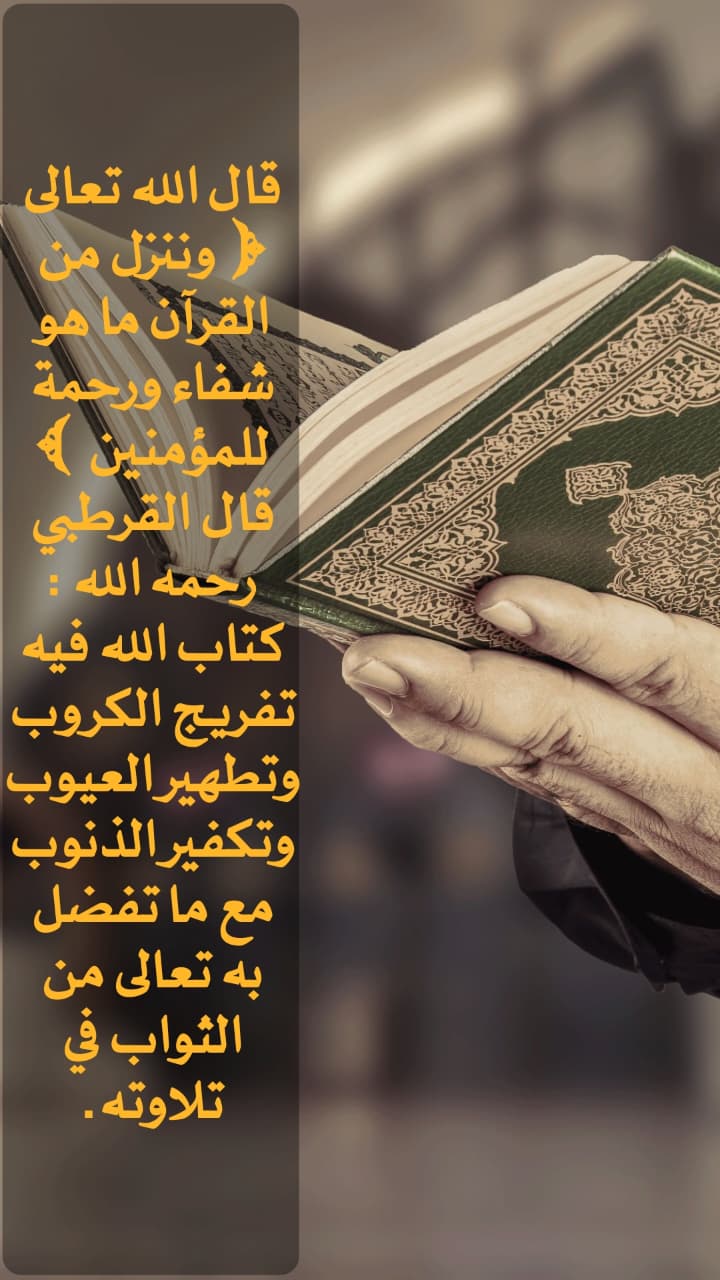 قال الله تعالى
﴿ وننزل من
القرآن ما هو
شفاء ورحمة
للمؤمنين ﴾
قال القرطبي
رحمه الله :
كتاب الله فيه
تفريج الكروب
وتطهير العيوب
وتكفير الذنوب
مع ما تفضل
به تعالى من
الثواب في
تلاوته .